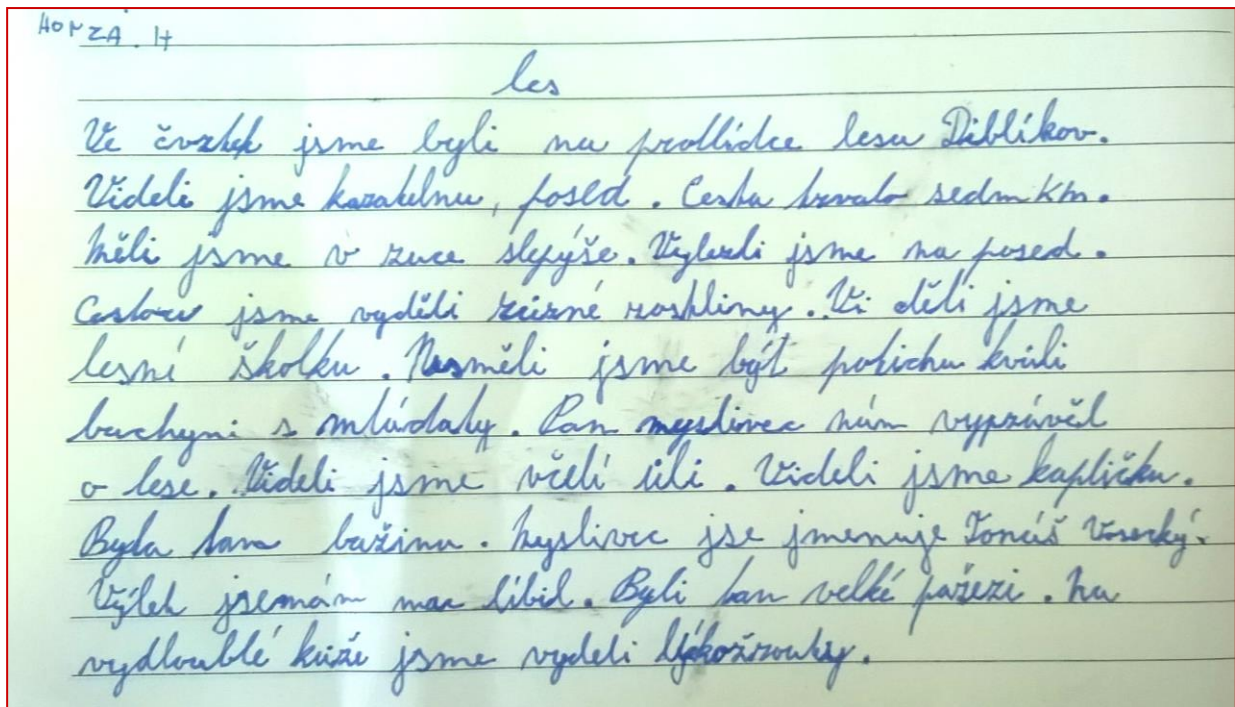 HONZA. H
les
Ve čvrtek jsme byli na prollídce lesa Diblíkov.
Videli jsme kazatelnu, posed. Cesta trvalo sedm km.
Měli jsme v ruce slepýše. Vylezli jsme na posed.
Cestou jsme vyděli různé rostliny. Vi děli jsme
lesní školku. Nesměli jsme být potichu kvůli
bachyni s mláďaty. Pan myslivec nám vyprávěl
o lese. Videli jsme včelí úli. Videli jsme kapličku.
Byla tam bažina. Myslivec jse jmenuje Tomáš
Výlet jsemám moc líbil. Byli tam velké pařezi. Na
vydloublé kůže jsme vydeli lýkožrouty.